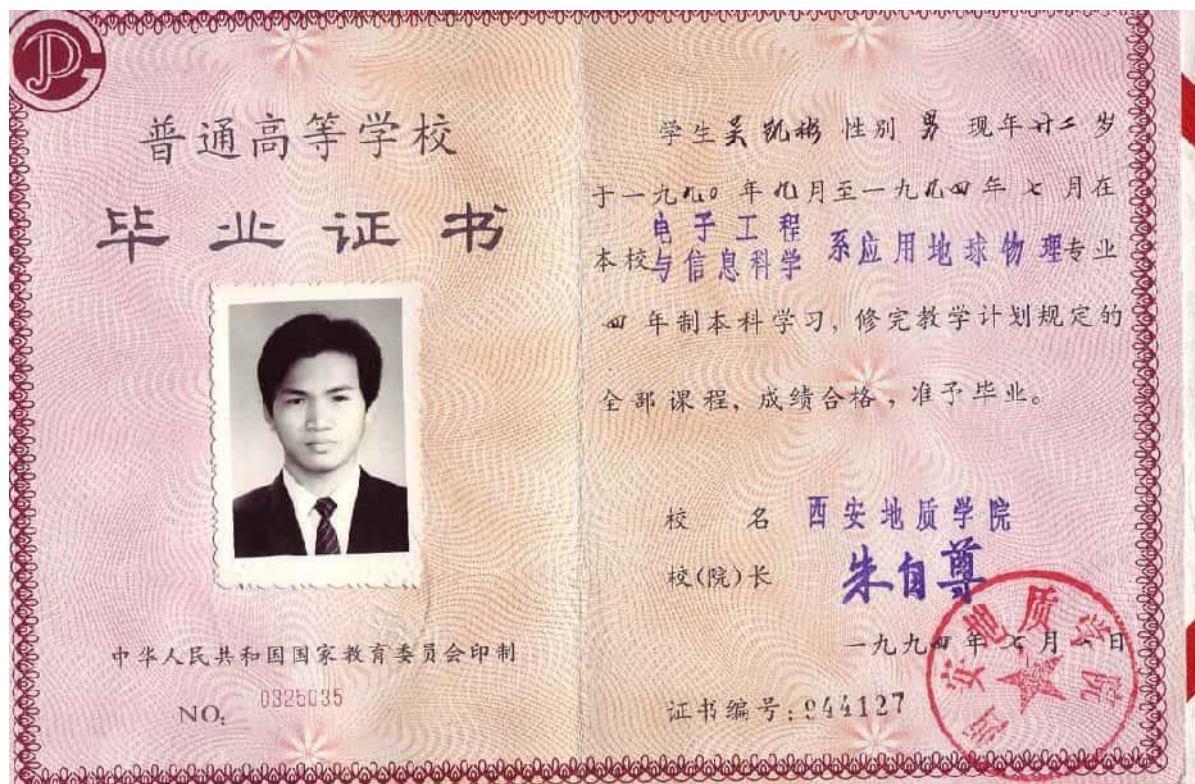 普通高等学校
毕业证书
中华人民共和国国家教育委员会印制
NO: 0325035
学生吴凯彬性别男现年廿二岁
于一九九〇年九月至一九九四年七月在
本校电子工程与信息科学系应用地球物理专业
四年制本科学习,修完教学计划规定的
全部课程,成绩合格,准予毕业。
校名 西安地质学院
校(院)长 朱自尊
一九九四年七月一日
证书编号:944127
西安地质学院